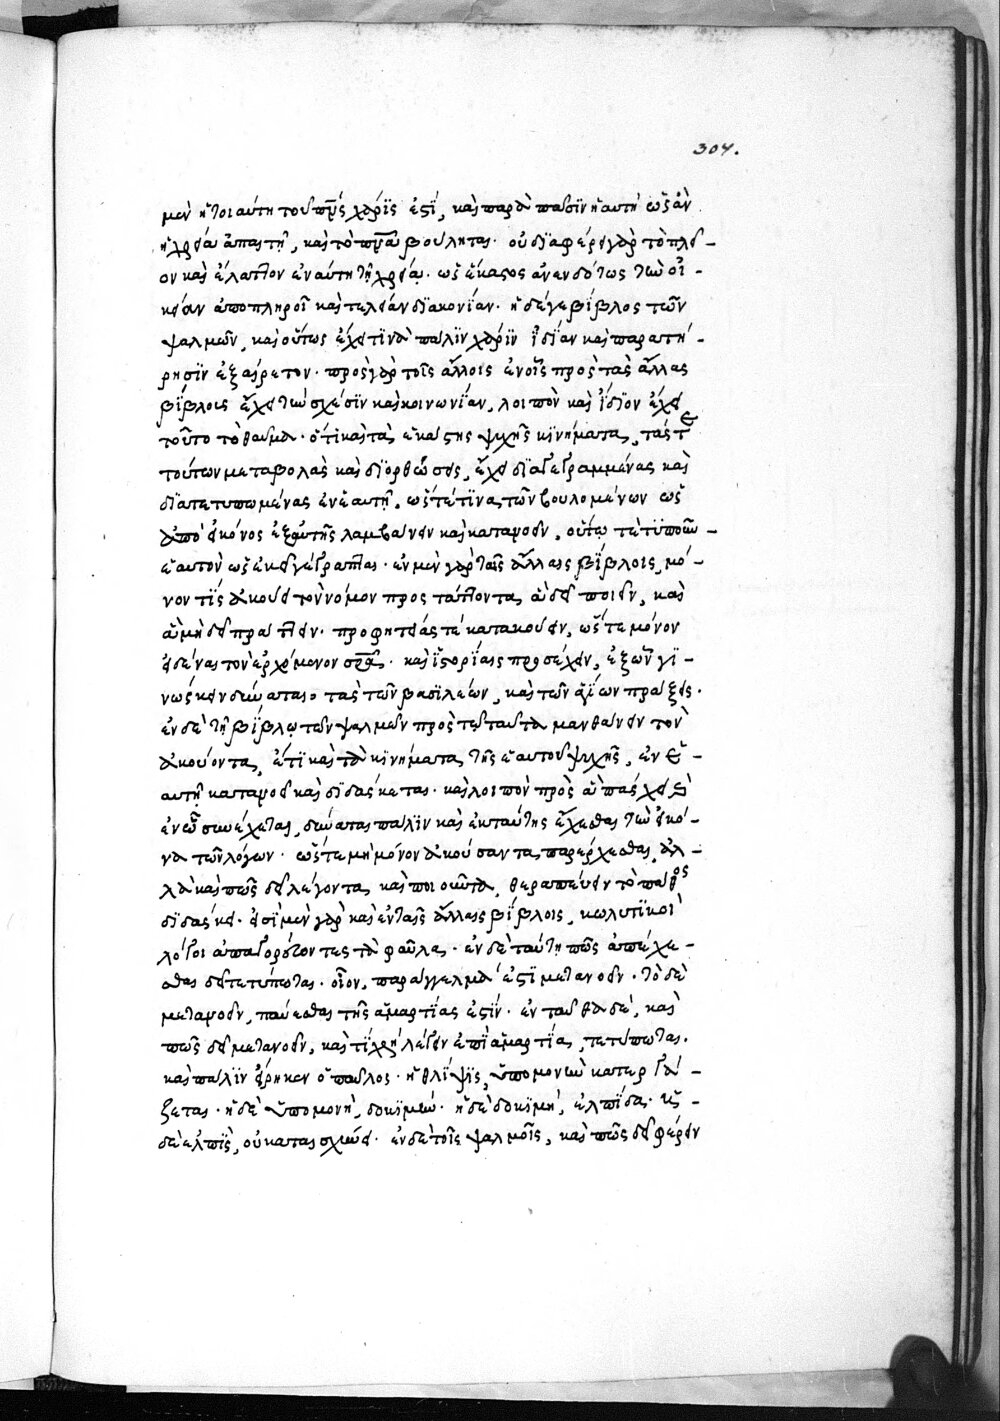 304.
μεν ἤτοι αὕτη τοῦ πνς χάρις ἐστί, καὶ παρὰ πᾶσιν ἡ αὐτὴ ὡς ἂν
ἡ χρεία ἀπαιτῇ, καὶ τὸ πνα βούληται. οὐ διαφέρει γὰρ τὸ πλεῖ-
ον καὶ ἔλαττον ἐν αὐτῇ τῇ χρείᾳ. ὡς ἕκαστος ἀνενδότως τὴν οἰ-
κείαν ἀποπληροῖ καὶ τελείαν διακονίαν. ἡ δέ γε βίβλος τῶν
ψαλμῶν, καὶ οὕτως ἔχει τινὰ πάλιν χάριν ἰδίαν καὶ παρατή-
ρησιν ἐξαίρετον. πρὸς γὰρ τοῖς ἄλλοις ἐν οἷς πρὸς τὰς ἄλλας
βίβλους ἔχει τὴν σχέσιν καὶ κοινωνίαν, λοιπὸν καὶ ἴδιον ἔχει
τοῦτο τὸ θαῦμα. ὅτι καὶ τὰ ἑκάστης ψυχῆς κινήματα, τάς τε
τούτων μεταβολὰς καὶ διορθώσεις, ἔχει διαγεγραμμένας καὶ
διατετυπωμένας ἐν ἑαυτῇ. ὥστέ τινα τῶν βουλομένων ὡς
ἀπὸ εἰκόνος ἐξ αὐτῆς λαμβάνειν καὶ κατανοεῖν, οὕτω τε τυποῦν
ἑαυτὸν ὡς ἐκεῖ γέγραπται. ἐν μὲν γὰρ ταῖς ἄλλαις βίβλοις, μό-
νον τίς ἀκούει τοῦ νόμου προστάττοντα, ἃ δεῖ ποιεῖν, καὶ
ἃ μὴ δεῖ πράττειν. προφητείας τε κατακούειν, ὥστε μόνον
εἰδέναι τὸν ἐρχόμενον σρα. καὶ ἱστορίαις προσέχειν, ἐξ ὧν γι-
νώσκειν δύναται τὰς τῶν βασιλείων, καὶ τῶν ἁγίων πράξεις.
ἐν δὲ τῇ βίβλῳ τῶν ψαλμῶν πρὸς τῷ ταῦτα μανθάνειν τὸν
ἀκούοντα, ἔτι καὶ τὰ κινήματα τῆς ἑαυτοῦ ψυχῆς, ἐν ἑ-
αυτῇ κατανοεῖ καὶ διδάσκεται. καὶ λοιπὸν πρὸς ἃ πάσχει
ἐν ᾧ συνέχεται, δύναται πάλιν καὶ ἐκ ταύτης ἔχεσθαι τὴν εἰκό-
να τῶν λόγων. ὥστε μὴ μόνον ἀκούσαντα παρέρχεσθαι, ἀλ-
λὰ καὶ πῶς δεῖ λέγοντα, καὶ ποιοῦντα, θεραπεύειν τὸ πάθος
διδάσκει. εἰσὶ μὲν γὰρ καὶ ἐν ταῖς ἄλλαις βίβλοις, κωλυτικοὶ
λόγοι ἀπαγορεύοντες τὰ φαῦλα. ἐν δὲ ταύτῃ πῶς ἀπέχε-
σθαι δεῖ τετύπωται. οἷον, παράγγελμά ἐστι μετανοεῖν. τὸ δὲ
μετανοεῖν, παύεσθαι τῆς ἁμαρτίας ἐστίν. ἐνταῦθα δὲ, καὶ
πῶς δεῖ μετανοεῖν, καὶ τί χρὴ λέγειν ἐπὶ ἁμαρτίᾳ, τετύπωται.
καὶ πάλιν εἴρηκεν ὁ παῦλος. ἡ θλίψις, ὑπομονὴν κατεργά-
ζεται. ἡ δὲ ὑπομονή, δοκιμήν. ἡ δὲ δοκιμή, ἐλπίδα. ἡ
δὲ ἐλπὶς, οὐ καταισχύνει. ἐν δὲ τοῖς ψαλμοῖς, καὶ πῶς δεῖ φέρειν